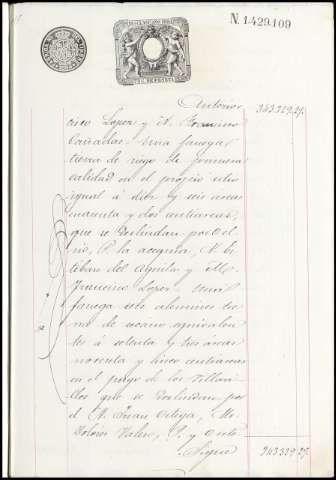 N. 1.429.109
Anterior 243.329.27.
cisco Lopez y N. Francisco
Cañadas. Una fanega
tierra de riego de primera
calidad en el propio sitio
igual á diez y seis áreas
cuarenta y dos centiareas,
que se deslindan por el
rio, P. la acequia, N. Es
teban del Aguila y M.
Francisco Lopez. Una
fanega seis celemines ter
reno de secano equivalen
tes á setenta y tres áreas
noventa y nueve centiareas
en el pago de los Villari
llos que se deslindan por
el N. Juan Ortega, M.
Dolores Valero, P. y
Sigue 243.329.27.